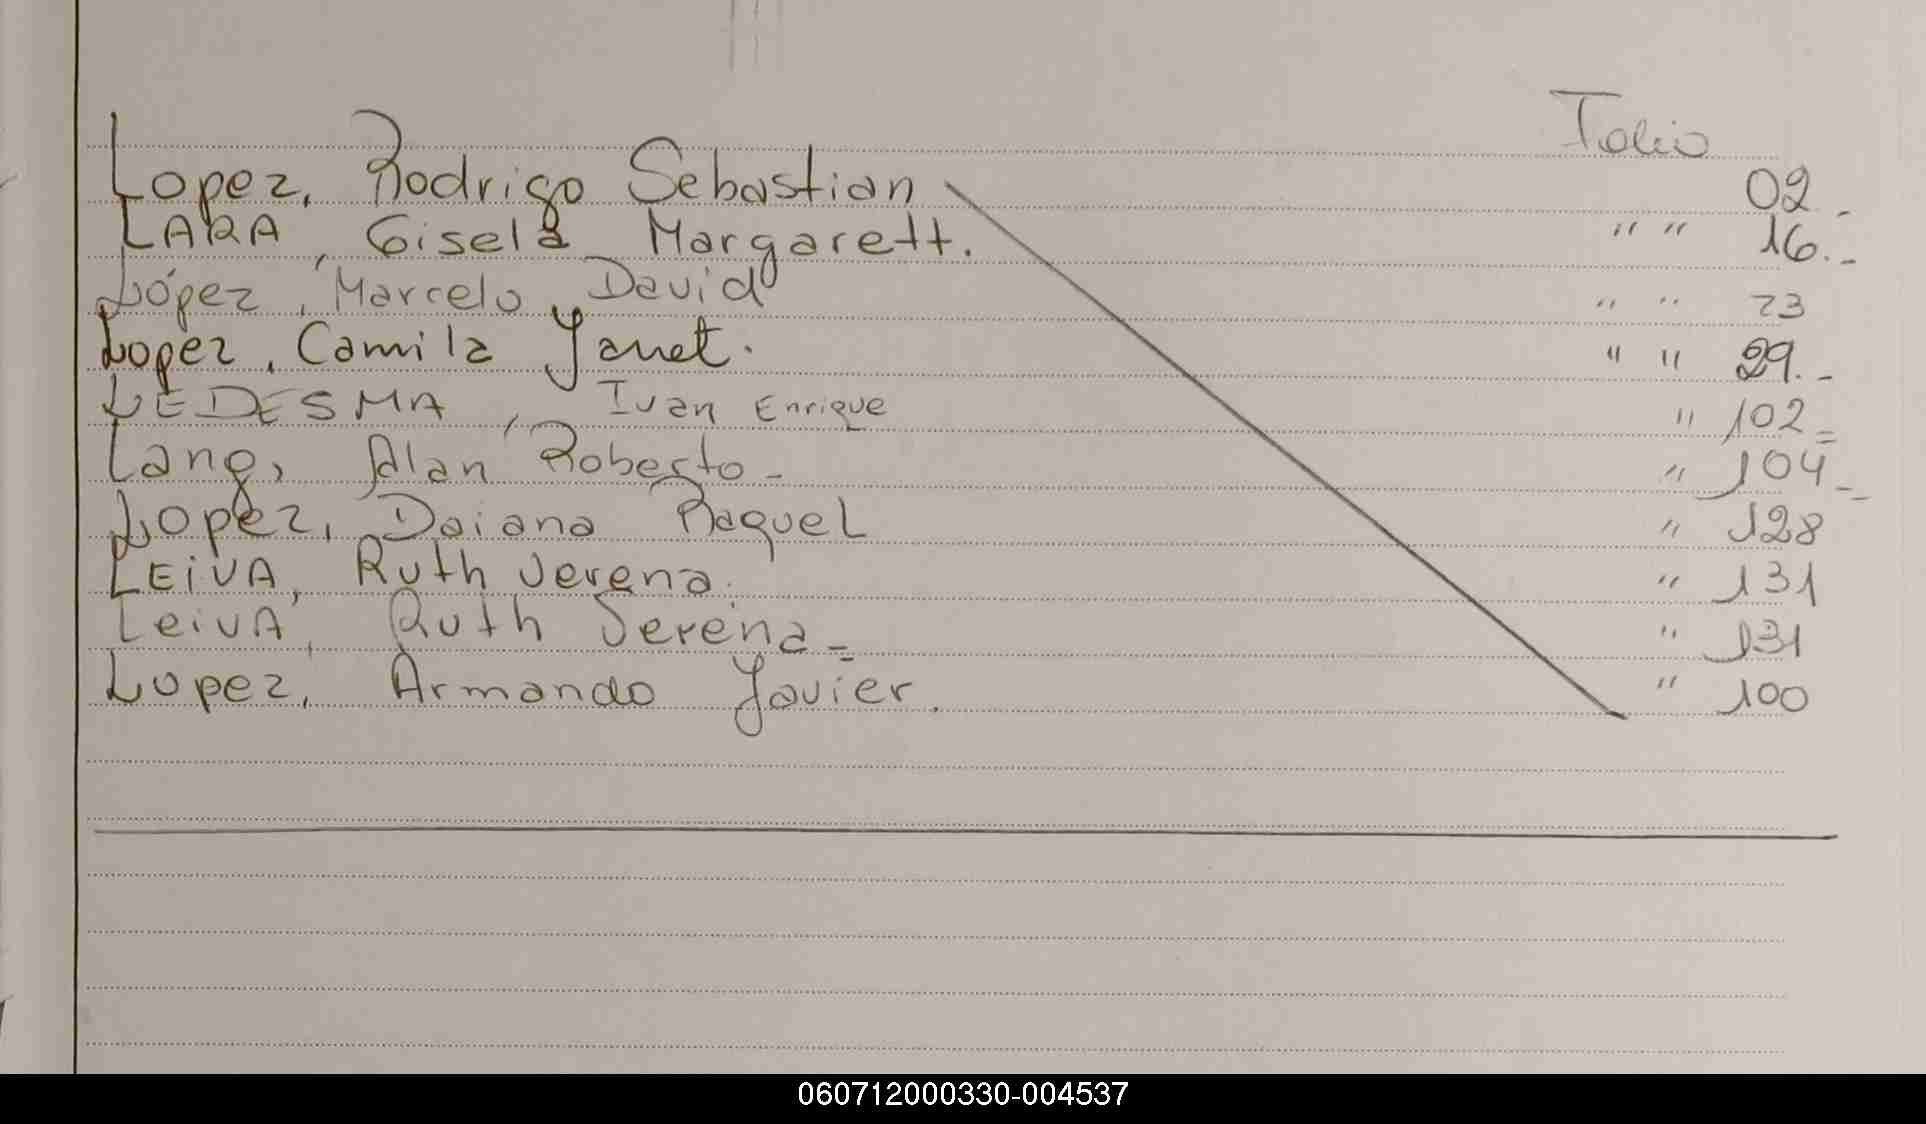 Folio
Lopez, Rodrigo Sebastian 02
LARA, Gisela Margarett. " " 16.-
López, Marcelo David " " 23
Lopez, Camila Yanet. " " 29.-
LEDESMA, Ivan Enrique " 102=
Lang, Alan Roberto- " 104--
Lopez, Daiana Raquel " 128
LEiVA, Ruth Serena. " 131
LeivA, Ruth Serena= " 131
Lopez, Armando Javier. " 100
060712000330-004537